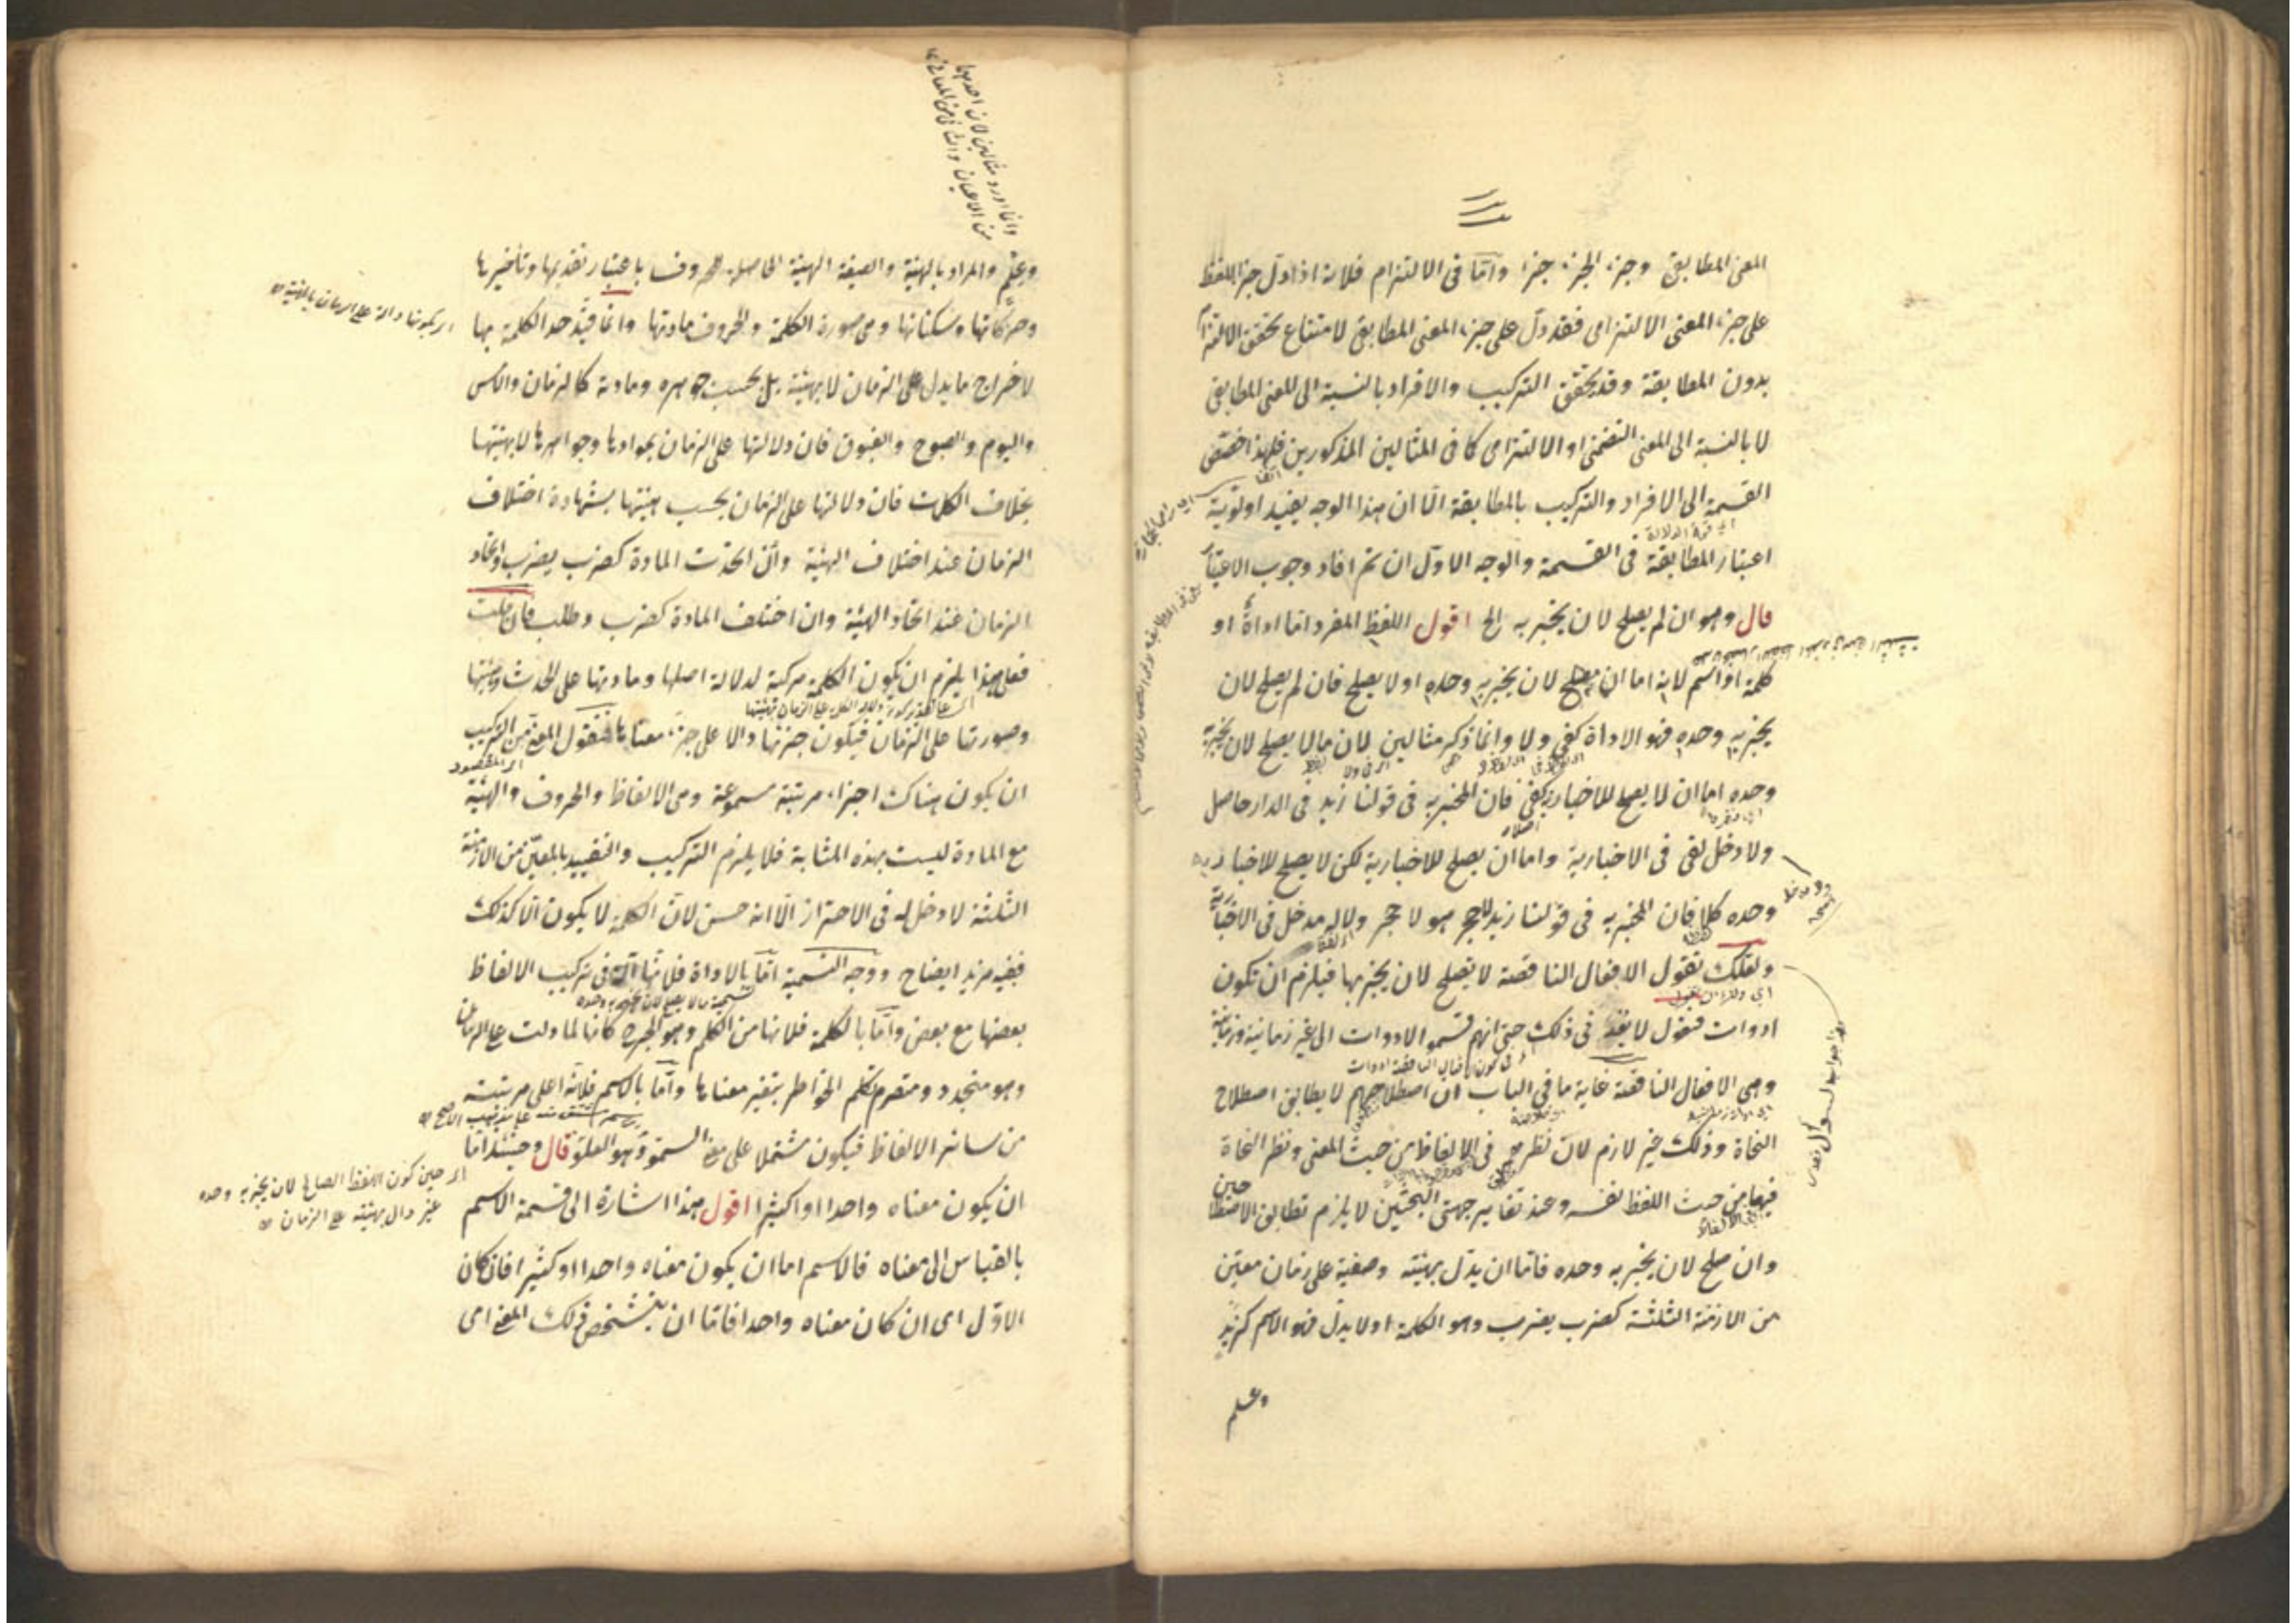 المعنى المطابقى وجزء الجزء جزء واما فى الالتزام فلانه اذا دل جزء اللفظ
على جزء المعنى الالتزامى فقد دل على جزء المعنى المطابقى لامتناع تحقق الالتزام
بدون المطابقة وقد يتحقق التركيب والافراد بالنسبة الى المعنى المطابقى
لا بالنسبة الى المعنى التضمنى او الالتزامى كما فى المثالين المذكورين فلهذا خصص
القسمة الى الافراد والتركيب بالمطابقة الا ان هذا الوجه يفيد اولوية
اعتبار المطابقة فى القسمة والوجه الاول ان تم افاد وجوب الاعتبار
قال وهو ان لم يصلح لان يخبر به الخ اقول اللفظ المفرد اما اداة او
كلمة او اسم لانه اما ان يصلح لان يخبر به وحده او لا يصلح فان لم يصلح لان
يخبر به وحده فهو الاداة كفى ولا وانما ذكر مثالين لان ما لا يصلح لان يخبر به
وحده اما ان لا يصلح للاخبار به كفى فان المخبر به فى قولنا زيد فى الدار حاصل
ولا دخل لفى فى الاخبارية واما ان يصلح للاخبارية لكن لا يصلح للاخبار به
وحده كلا فان المخبر به فى قولنا زيد لا حجر هو لا حجر ولا له مدخل فى الاخبارية
ولعلك تقول الافعال الناقصة لا تصلح لان يخبر بها فيلزم ان تكون
ادوات فنقول لا بعد فى ذلك حتى انهم قسموا الادوات الى غير زمانية وزمانية
وهى الافعال الناقصة غاية ما فى الباب ان اصطلاحهم لا يطابق اصطلاح
النحاة وذلك غير لازم لان نظرهم فى الالفاظ من حيث المعنى ونظر النحاة
فيها من حيث اللفظ نفسه وعند تغاير جهتى البحثين لا يلزم تطابق الاصطلاحين
وان صلح لان يخبر به وحده فاما ان يدل بهيئته وصيغته على زمان معين
من الازمنة الثلثة كضرب يضرب وهو الكلمة او لا يدل فهو الاسم كزيد
وعلم
وانما اورد مثالين لان احدهما
من الاعيان والثانى من المعانى
وعلم والمراد بالهيئة والصيغة الهيئة الحاصلة للحروف باعتبار تقديمها وتاخيرها
وحركاتها وسكناتها وهى صورة الكلمة والحروف مادتها وانما قيد حد الكلمة بها
لاخراج ما يدل على الزمان لا بهيئته بل بحسب جوهره ومادته كالزمان والامس
واليوم والصبوح والغبوق فان دلالتها على الزمان بموادها وجواهرها لا بهيئتها
بخلاف الكلمات فان دلالتها على الزمان بحسب هيئتها بشهادة اختلاف
الزمان عند اختلاف الهيئة وان اتحدت المادة كضرب يضرب واتحاد
الزمان عند اتحاد الهيئة وان اختلف المادة كضرب وطلب فان قلت
فعلى هذا يلزم ان يكون الكلمة مركبة لدلالة اصلها ومادتها على الحدث وهيئتها
وصورتها على الزمان فيكون جزئها دالا على جزء معناها فنقول المعنى من التركيب
ان يكون هناك اجزاء مرتبة مسموعة وهى الالفاظ والحروف والهيئة
مع المادة ليست بهذه المثابة فلا يلزم التركيب والتقييد بالمعين من الازمنة
الثلثة لا دخل له فى الاحتراز الا انه حسن لان الكلمة لا يكون الا كذلك
ففيه مزيد ايضاح ووجه التسمية اما بالاداة فلانها آلة فى تركيب الالفاظ
بعضها مع بعض واما بالكلمة فلانها من الكلم وهو الجرح كانها لما دلت على الزمان
وهو متجدد ومتصرم تكلم الخواطر بتغير معناها واما بالاسم فلانه اعلى مرتبته
من سائر الالفاظ فيكون مشتملا على معنى السمو وهو العلو قال وحينئذ اما
ان يكون معناه واحدا او كثيرا اقول هذا اشارة الى قسمة الاسم
بالقياس الى معناه فالاسم اما ان يكون معناه واحدا او كثيرا فان كان
الاول اى ان كان معناه واحدا فاما ان يتشخص ذلك المعنى اى
اى حين كون اللفظ الصالح لان يخبر به وحده
غير دال بهيئته على الزمان